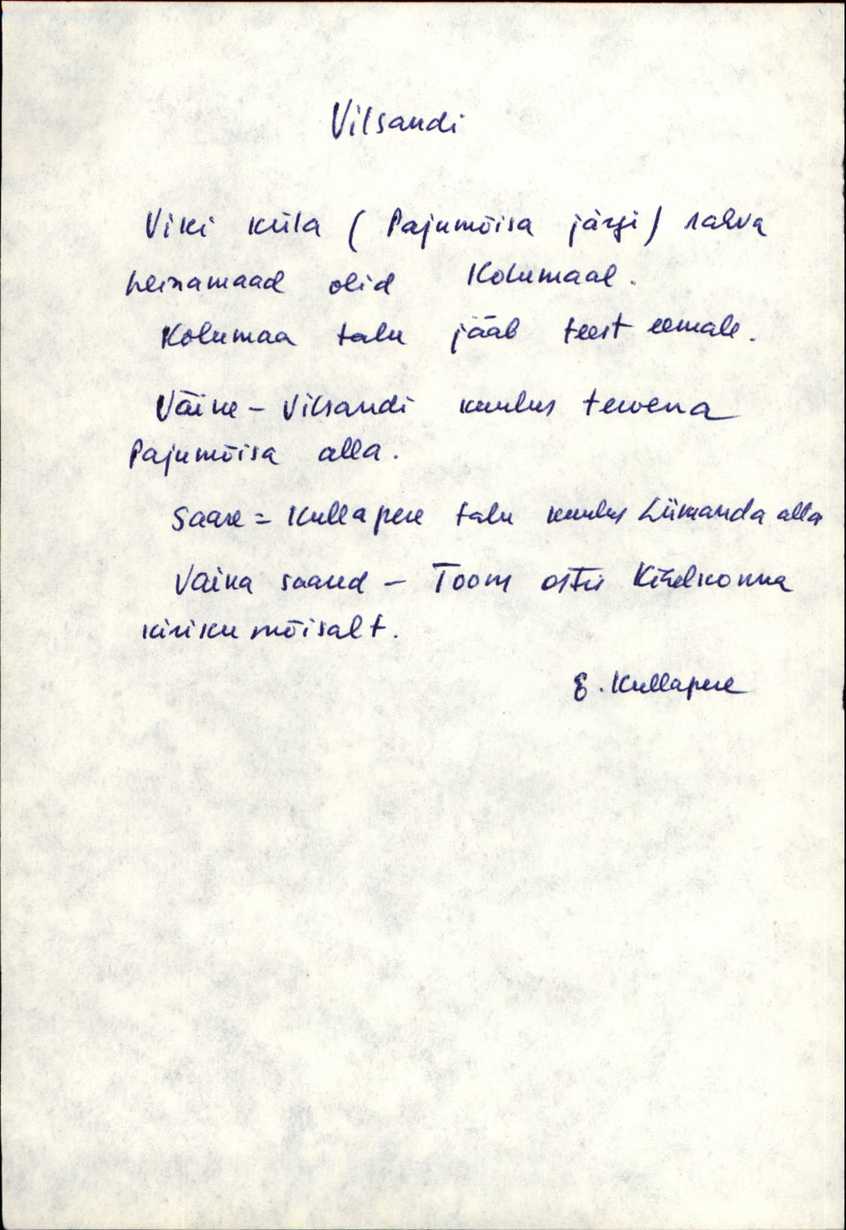 Vilsandi
Viki küla (Pajumõisa järgi) rahva
heinamaad olid Kolumaal.
Kolumaa talu jääb teest eemale.
Väike-Vilsandi kuulus tervena
Pajumõisa alla.
Saare = Kullapere talu kuulus Lümanda alla
Vaika saared – Toom ostis Kihelkonna
kirikumõisalt.
E. Kullapere